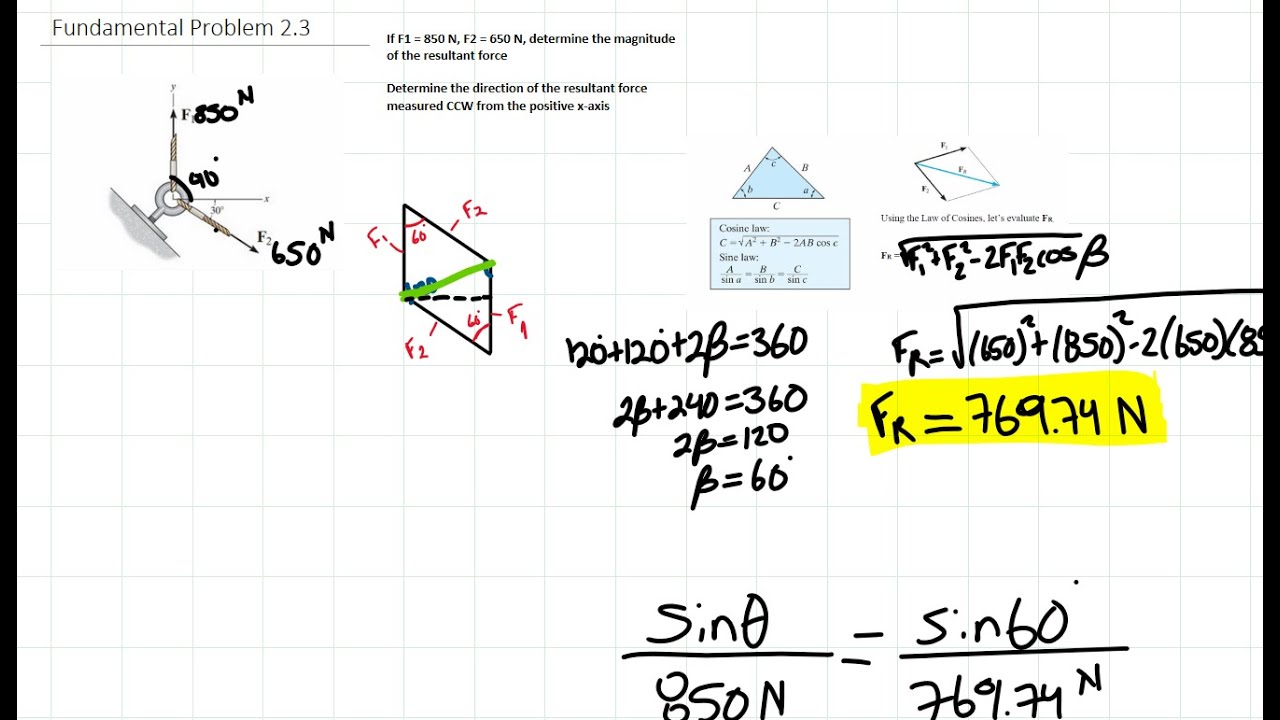 Fundamental Problem 2.3
If F1 = 850 N, F2 = 650 N, determine the magnitude
of the resultant force
Determine the direction of the resultant force
measured CCW from the positive x-axis
y
F₁ 850 N
90°
x
30°
F₂ 650 N
F₁
60°
F₂
60°
F₁
F₂
A
c
B
b
a
C
Cosine law:
C = √A² + B² − 2AB cos c
Sine law:
A/sin a = B/sin b = C/sin c
F₁
F_R
F₂
Using the Law of Cosines, let's evaluate F_R
F_R = √F₁² + F₂² - 2F₁F₂cos β
120° + 120° + 2β = 360
2β + 240 = 360
2β = 120
β = 60°
F_R = √(650)² + (850)² - 2(650)(85
F_R = 769.74 N
sinθ/850 N = sin60°/769.74 N